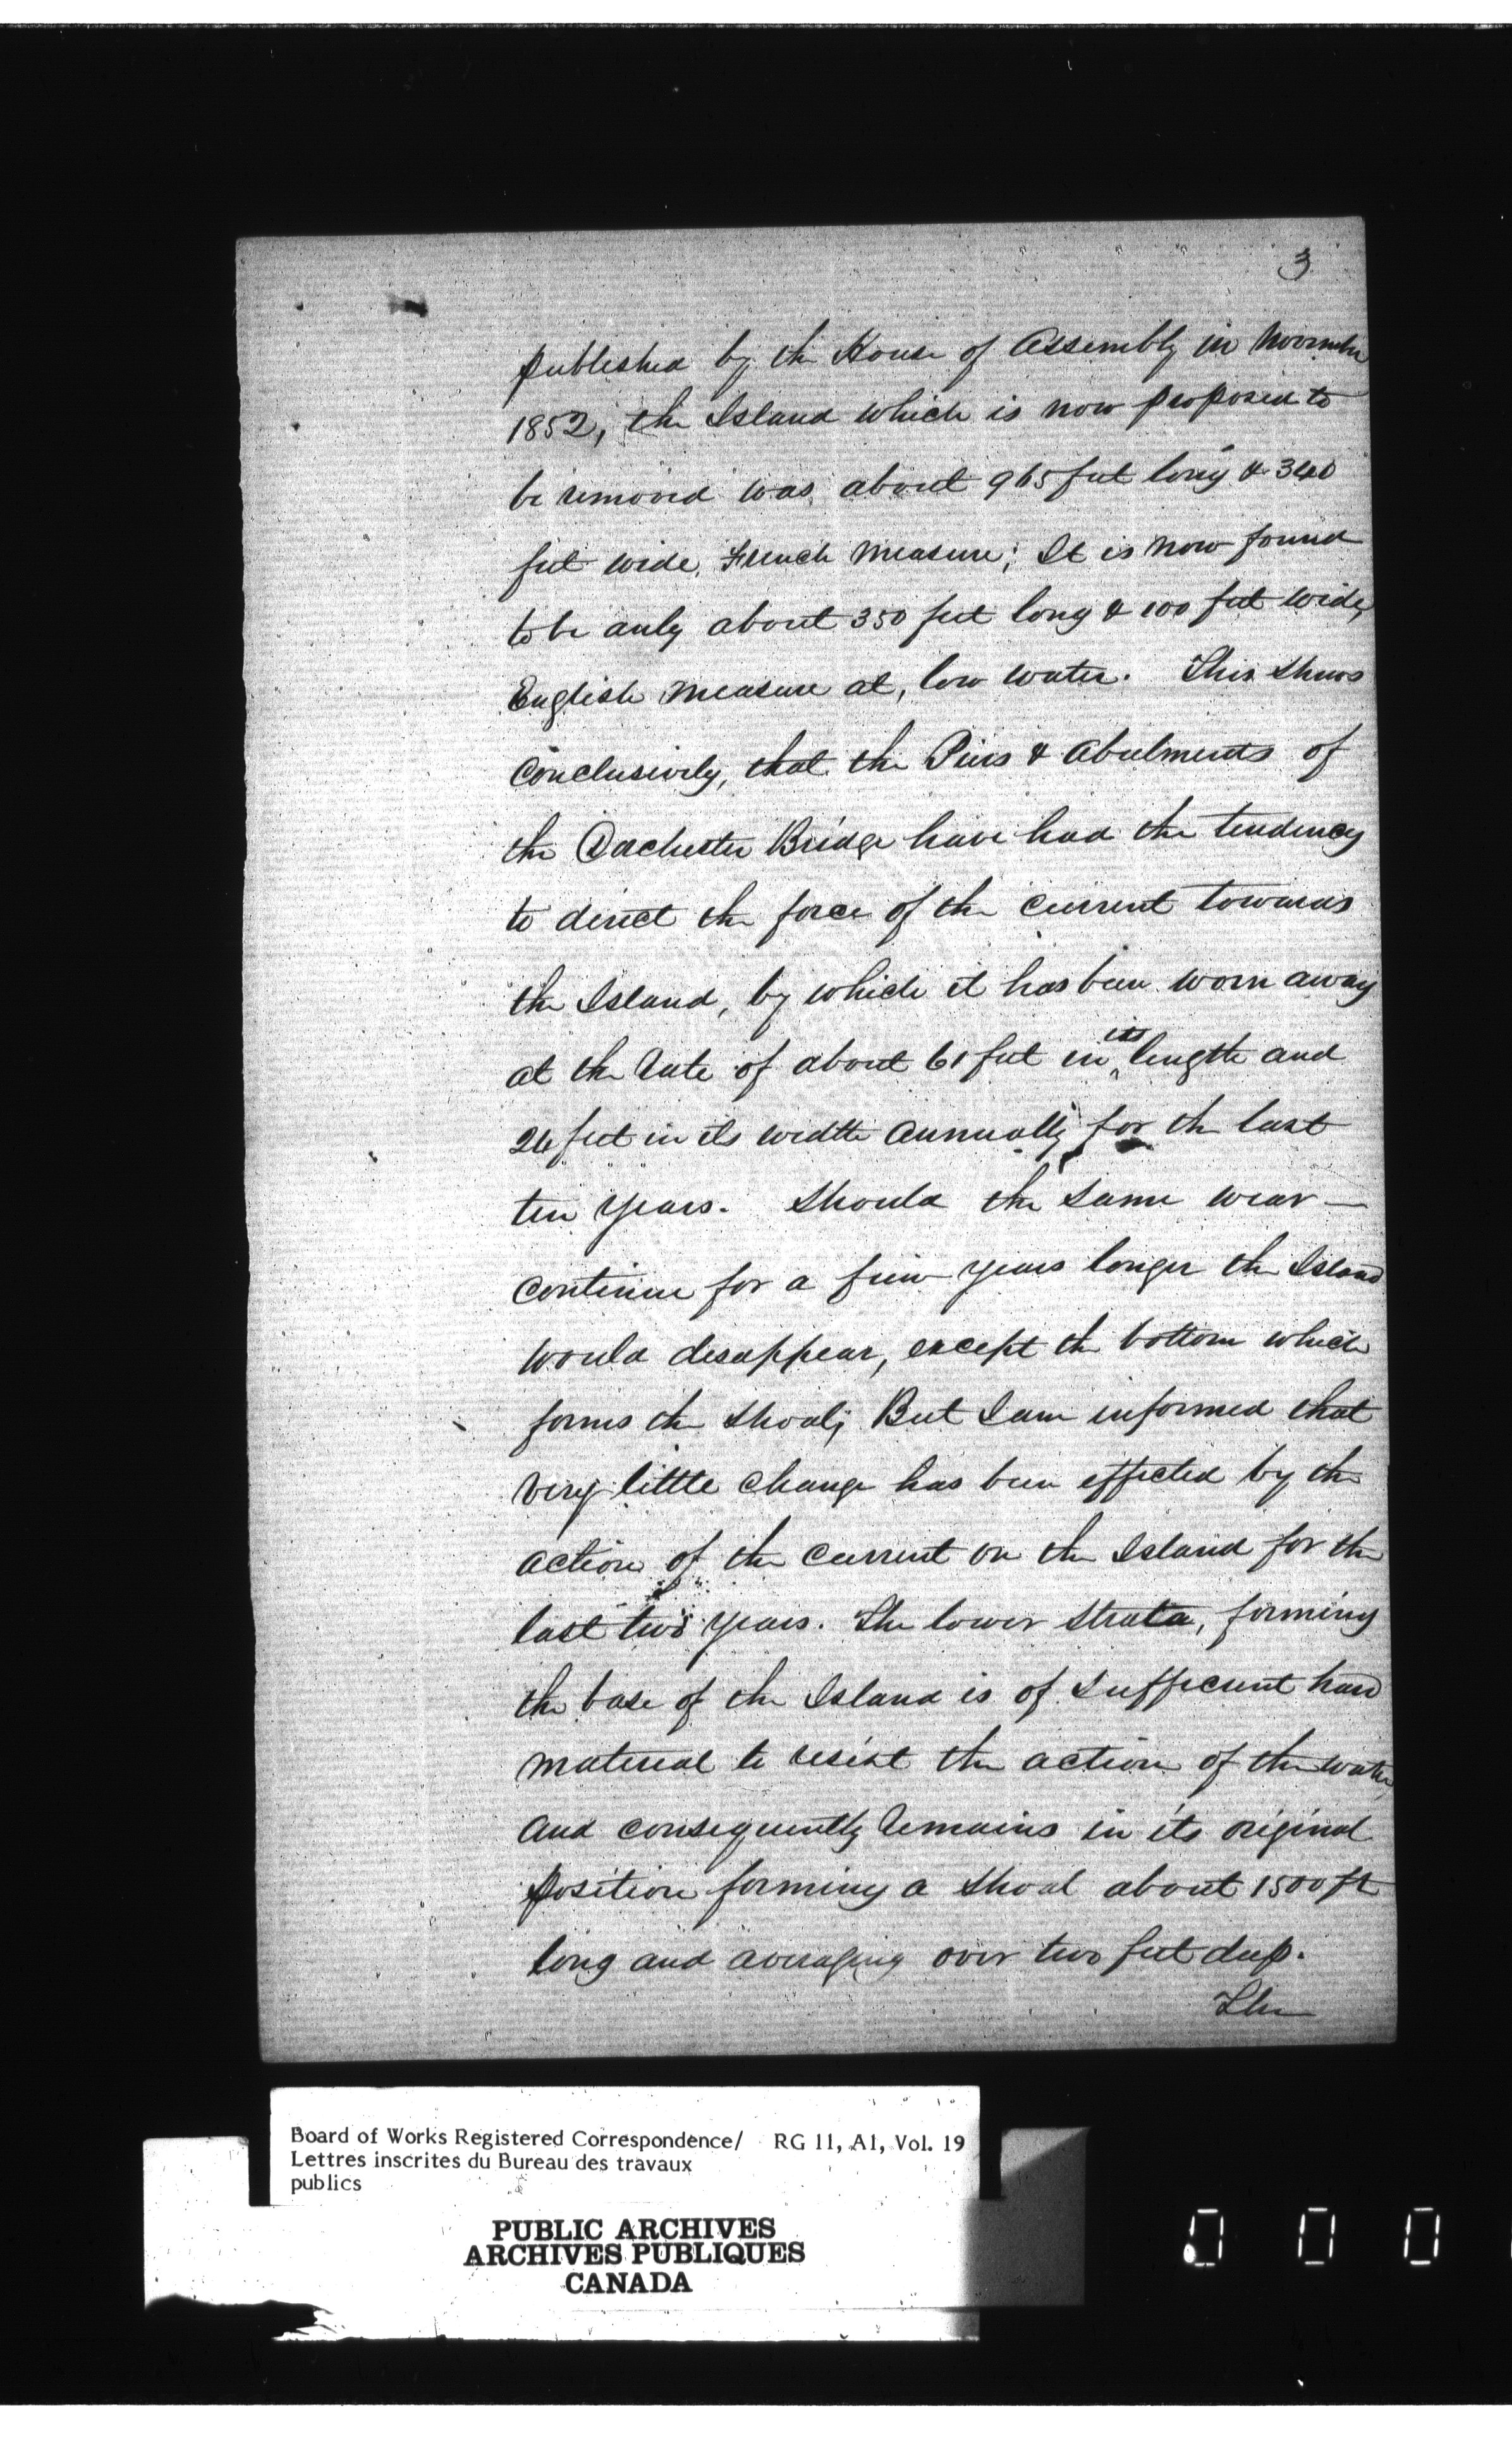 3
published by the House of Assembly in November
1852, the Island which is now proposed to
be removed was about 965 feet long & 340
feet wide, French measure; It is now found
to be only about 350 feet long & 100 feet wide,
English measure at, low water. This shews
Conclusively, that the Piers & Abutments of
the Dorchester Bridge have had the tendency
to direct the force of the Current towards
the Island, by which it has been worn away
at the rate of about 61 feet in its length and
24 feet in its width annually for the last
ten years. Should the same wear
continue for a few years longer the Island
would disappear, except the bottom which
forms the shoal; But I am informed that
very little change has been effected by the
action of the current on the Island for the
last two years. The lower Strata, forming
the base of the Island is of sufficient hard
material to resist the action of the water
and consequently remains in its original
position forming a shoal about 1500 ft
long and averaging over two feet deep.
The
Board of Works Registered Correspondence/ RG 11, A1, Vol. 19
Lettres inscrites du Bureau des travaux
publics
PUBLIC ARCHIVES
ARCHIVES PUBLIQUES
CANADA
0 0 0